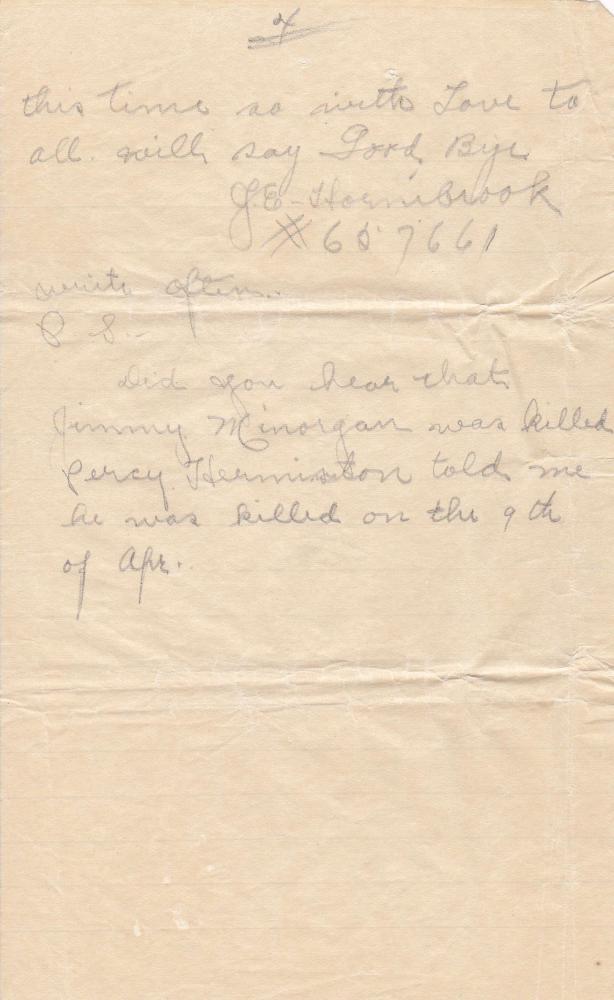 4
this time so with Love to
all. will say Good Bye
J.E. Hornibrook
# 657661
write often.
P S.-
Did you hear that
Jimmy Minorgan was killed
Percy Hermiston told me
he was killed on the 9th
of Apr.